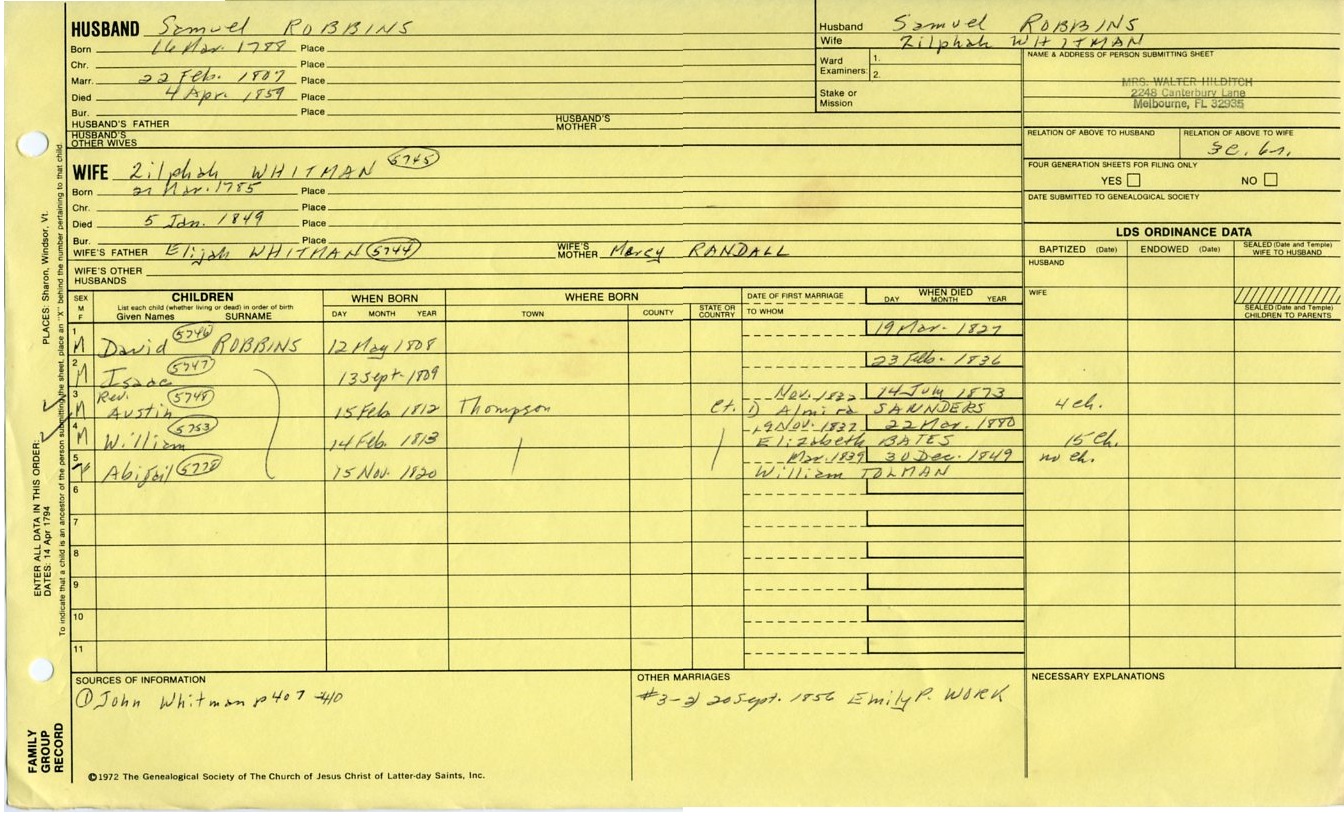 HUSBAND Samuel ROBBINS
Born 16 Mar. 1788 Place
Chr. Place
Marr. 22 Feb. 1807 Place
Died 4 Apr. 1859 Place
Bur. Place
HUSBAND'S FATHER HUSBAND'S MOTHER
HUSBAND'S OTHER WIVES
WIFE Zilphah WHITMAN 5745
Born 21 Mar. 1785 Place
Chr. Place
Died 5 Jan. 1849 Place
Bur. Place
WIFE'S FATHER Elijah WHITMAN 5744 WIFE'S MOTHER Mercy RANDALL
WIFE'S OTHER HUSBANDS
Husband Samuel ROBBINS
Wife Zilphah WHITMAN
Ward Examiners: 1.
2.
Stake or Mission
NAME & ADDRESS OF PERSON SUBMITTING SHEET
MRS. WALTER HILDITCH
2248 Canterbury Lane
Melbourne, FL 32935
RELATION OF ABOVE TO HUSBAND RELATION OF ABOVE TO WIFE
3c. 6r.
FOUR GENERATION SHEETS FOR FILING ONLY
YES NO
DATE SUBMITTED TO GENEALOGICAL SOCIETY
LDS ORDINANCE DATA
BAPTIZED (Date) ENDOWED (Date) SEALED (Date and Temple) WIFE TO HUSBAND
HUSBAND
WIFE
SEALED (Date and Temple) CHILDREN TO PARENTS
SEX M F CHILDREN WHEN BORN WHERE BORN DATE OF FIRST MARRIAGE WHEN DIED
List each child (whether living or dead) in order of birth
Given Names SURNAME DAY MONTH YEAR TOWN COUNTY STATE OR COUNTRY TO WHOM DAY MONTH YEAR
1 M David 5746 ROBBINS 12 May 1808 19 Mar. 1827
2 M Isaac 5747 13 Sept. 1809 23 Feb. 1836
3 M Rev. Austin 5748 15 Feb 1812 Thompson Ct. Nov. 1832 14 July 1873
1) Almira SANNDERS 4 ch.
4 M William 5753 14 Feb. 1813 19 Nov. 1837 22 Mar. 1880
Elizabeth BATES 15 ch.
5 Abigail 5778 15 Nov. 1820 Mar. 1839 30 Dec. 1849
William TOLMAN no ch.
6
7
8
9
10
11
SOURCES OF INFORMATION
① John Whitman p 407-410
OTHER MARRIAGES
#3-2) 20 Sept. 1856 Emily P. WORK
NECESSARY EXPLANATIONS
©1972 The Genealogical Society of The Church of Jesus Christ of Latter-day Saints, Inc.
ENTER ALL DATA IN THIS ORDER:
DATES: 14 Apr 1794 PLACES: Sharon, Windsor, Vt.
To indicate that a child is an ancestor of the person submitting the sheet, place an "X" behind the number pertaining to that child.
FAMILY GROUP RECORD